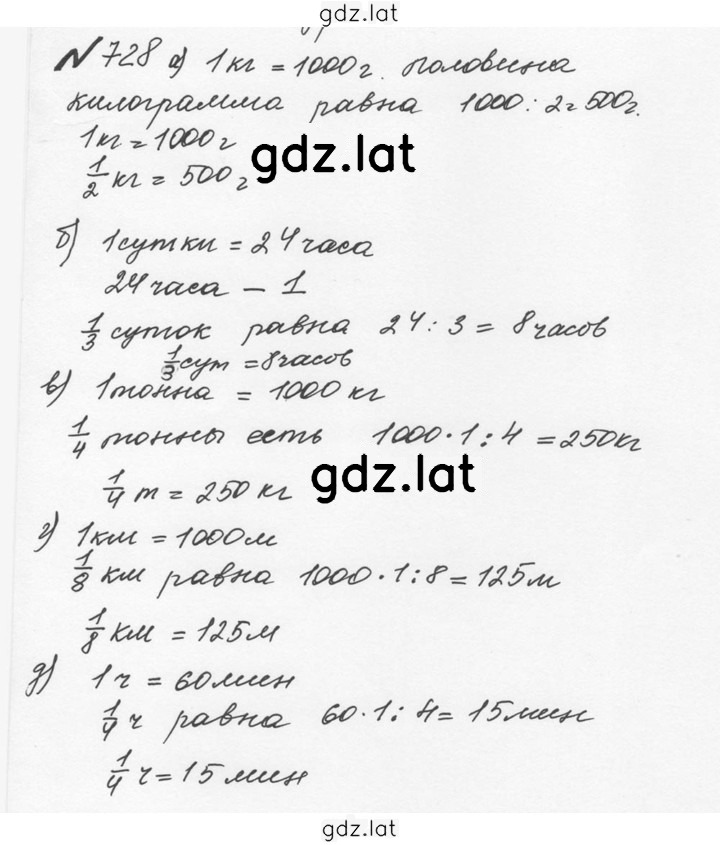 gdz.lat
№728 а) 1кг = 1000г. половина
килограмма равна 1000 : 2 = 500г.
1кг = 1000г
1/2 кг = 500г
gdz.lat
б) 1сутки = 24часа
24часа – 1
1/3 суток равна 24 : 3 = 8часов
1/3 сут = 8часов
в) 1тонна = 1000кг
1/4 тонны есть 1000·1 : 4 = 250кг
1/4 т = 250кг
gdz.lat
г) 1км = 1000м
1/8 км равна 1000·1:8 = 125м
1/8 км = 125м
д) 1ч = 60мин
1/4 ч равна 60·1 : 4 = 15мин
1/4 ч = 15мин
gdz.lat